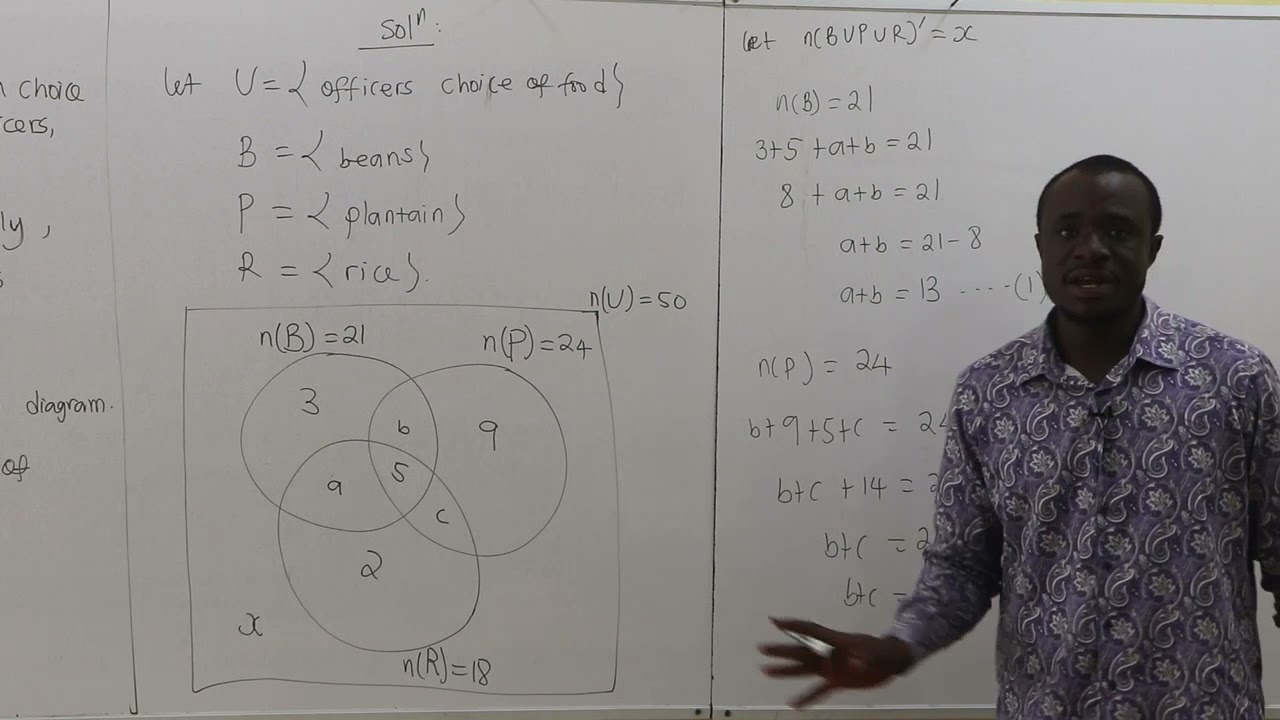 n choice
cers,
ly,
s
diagram.
of
Solⁿ:
let U = { officers choice of food}
B = { beans}
P = { plantain}
R = { rice}.
n(U) = 50
n(B) = 21
n(P) = 24
3
b
9
5
a
c
2
x
n(R) = 18
let n(BUPUR)' = x
n(B) = 21
3+5 +a+b = 21
8 + a+b = 21
a+b = 21-8
a+b = 13 ....(1)
n(P) = 24
b+9+5+c = 24
b+c +14 = 2
b+c = 2
b+c =